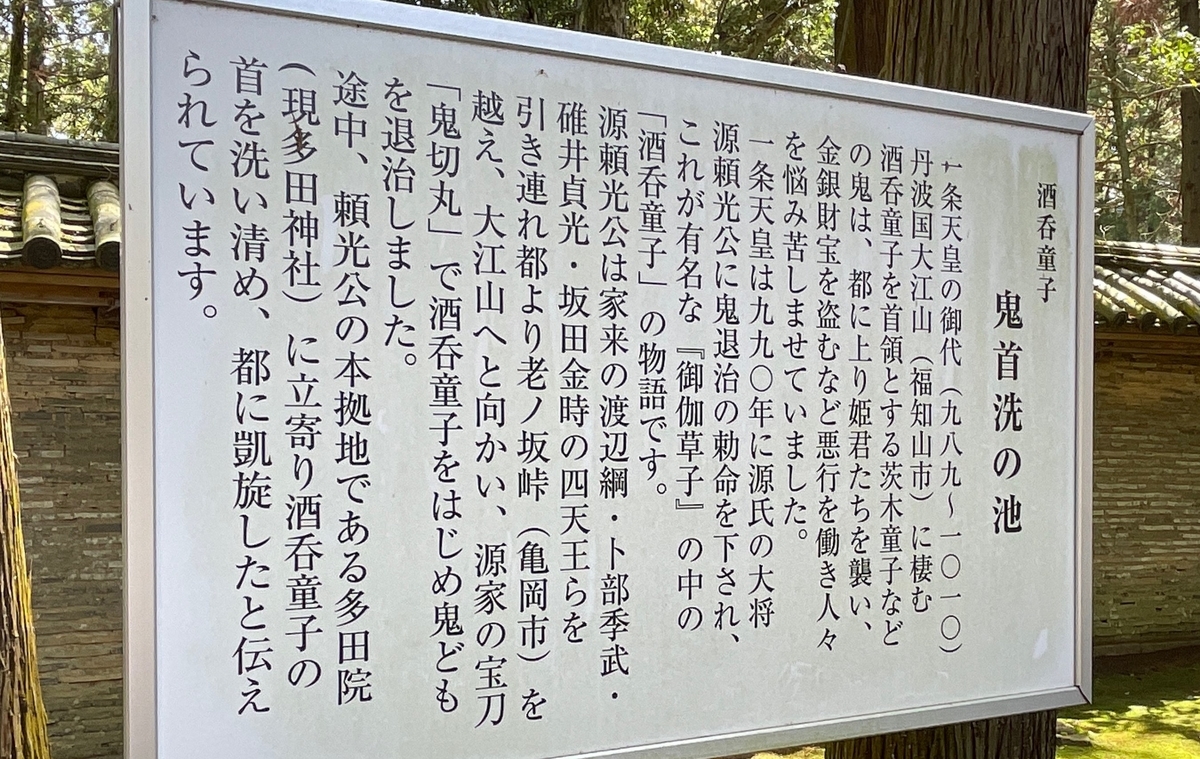 酒呑童子
鬼首洗の池
一条天皇の御代（九八九～一〇一〇）
丹波国大江山（福知山市）に棲む
酒呑童子を首領とする茨木童子など
の鬼は、都に上り姫君たちを襲い、
金銀財宝を盗むなど悪行を働き人々
を悩み苦しませていました。
一条天皇は九九〇年に源氏の大将
源頼光公に鬼退治の勅命を下され、
これが有名な『御伽草子』の中の
「酒呑童子」の物語です。
源頼光公は家来の渡辺綱・卜部季武・
碓井貞光・坂田金時の四天王らを
引き連れ都より老ノ坂峠（亀岡市）を
越え、大江山へと向かい、源家の宝刀
「鬼切丸」で酒呑童子をはじめ鬼ども
を退治しました。
途中、頼光公の本拠地である多田院
（現多田神社）に立寄り酒呑童子の
首を洗い清め、都に凱旋したと伝え
られています。